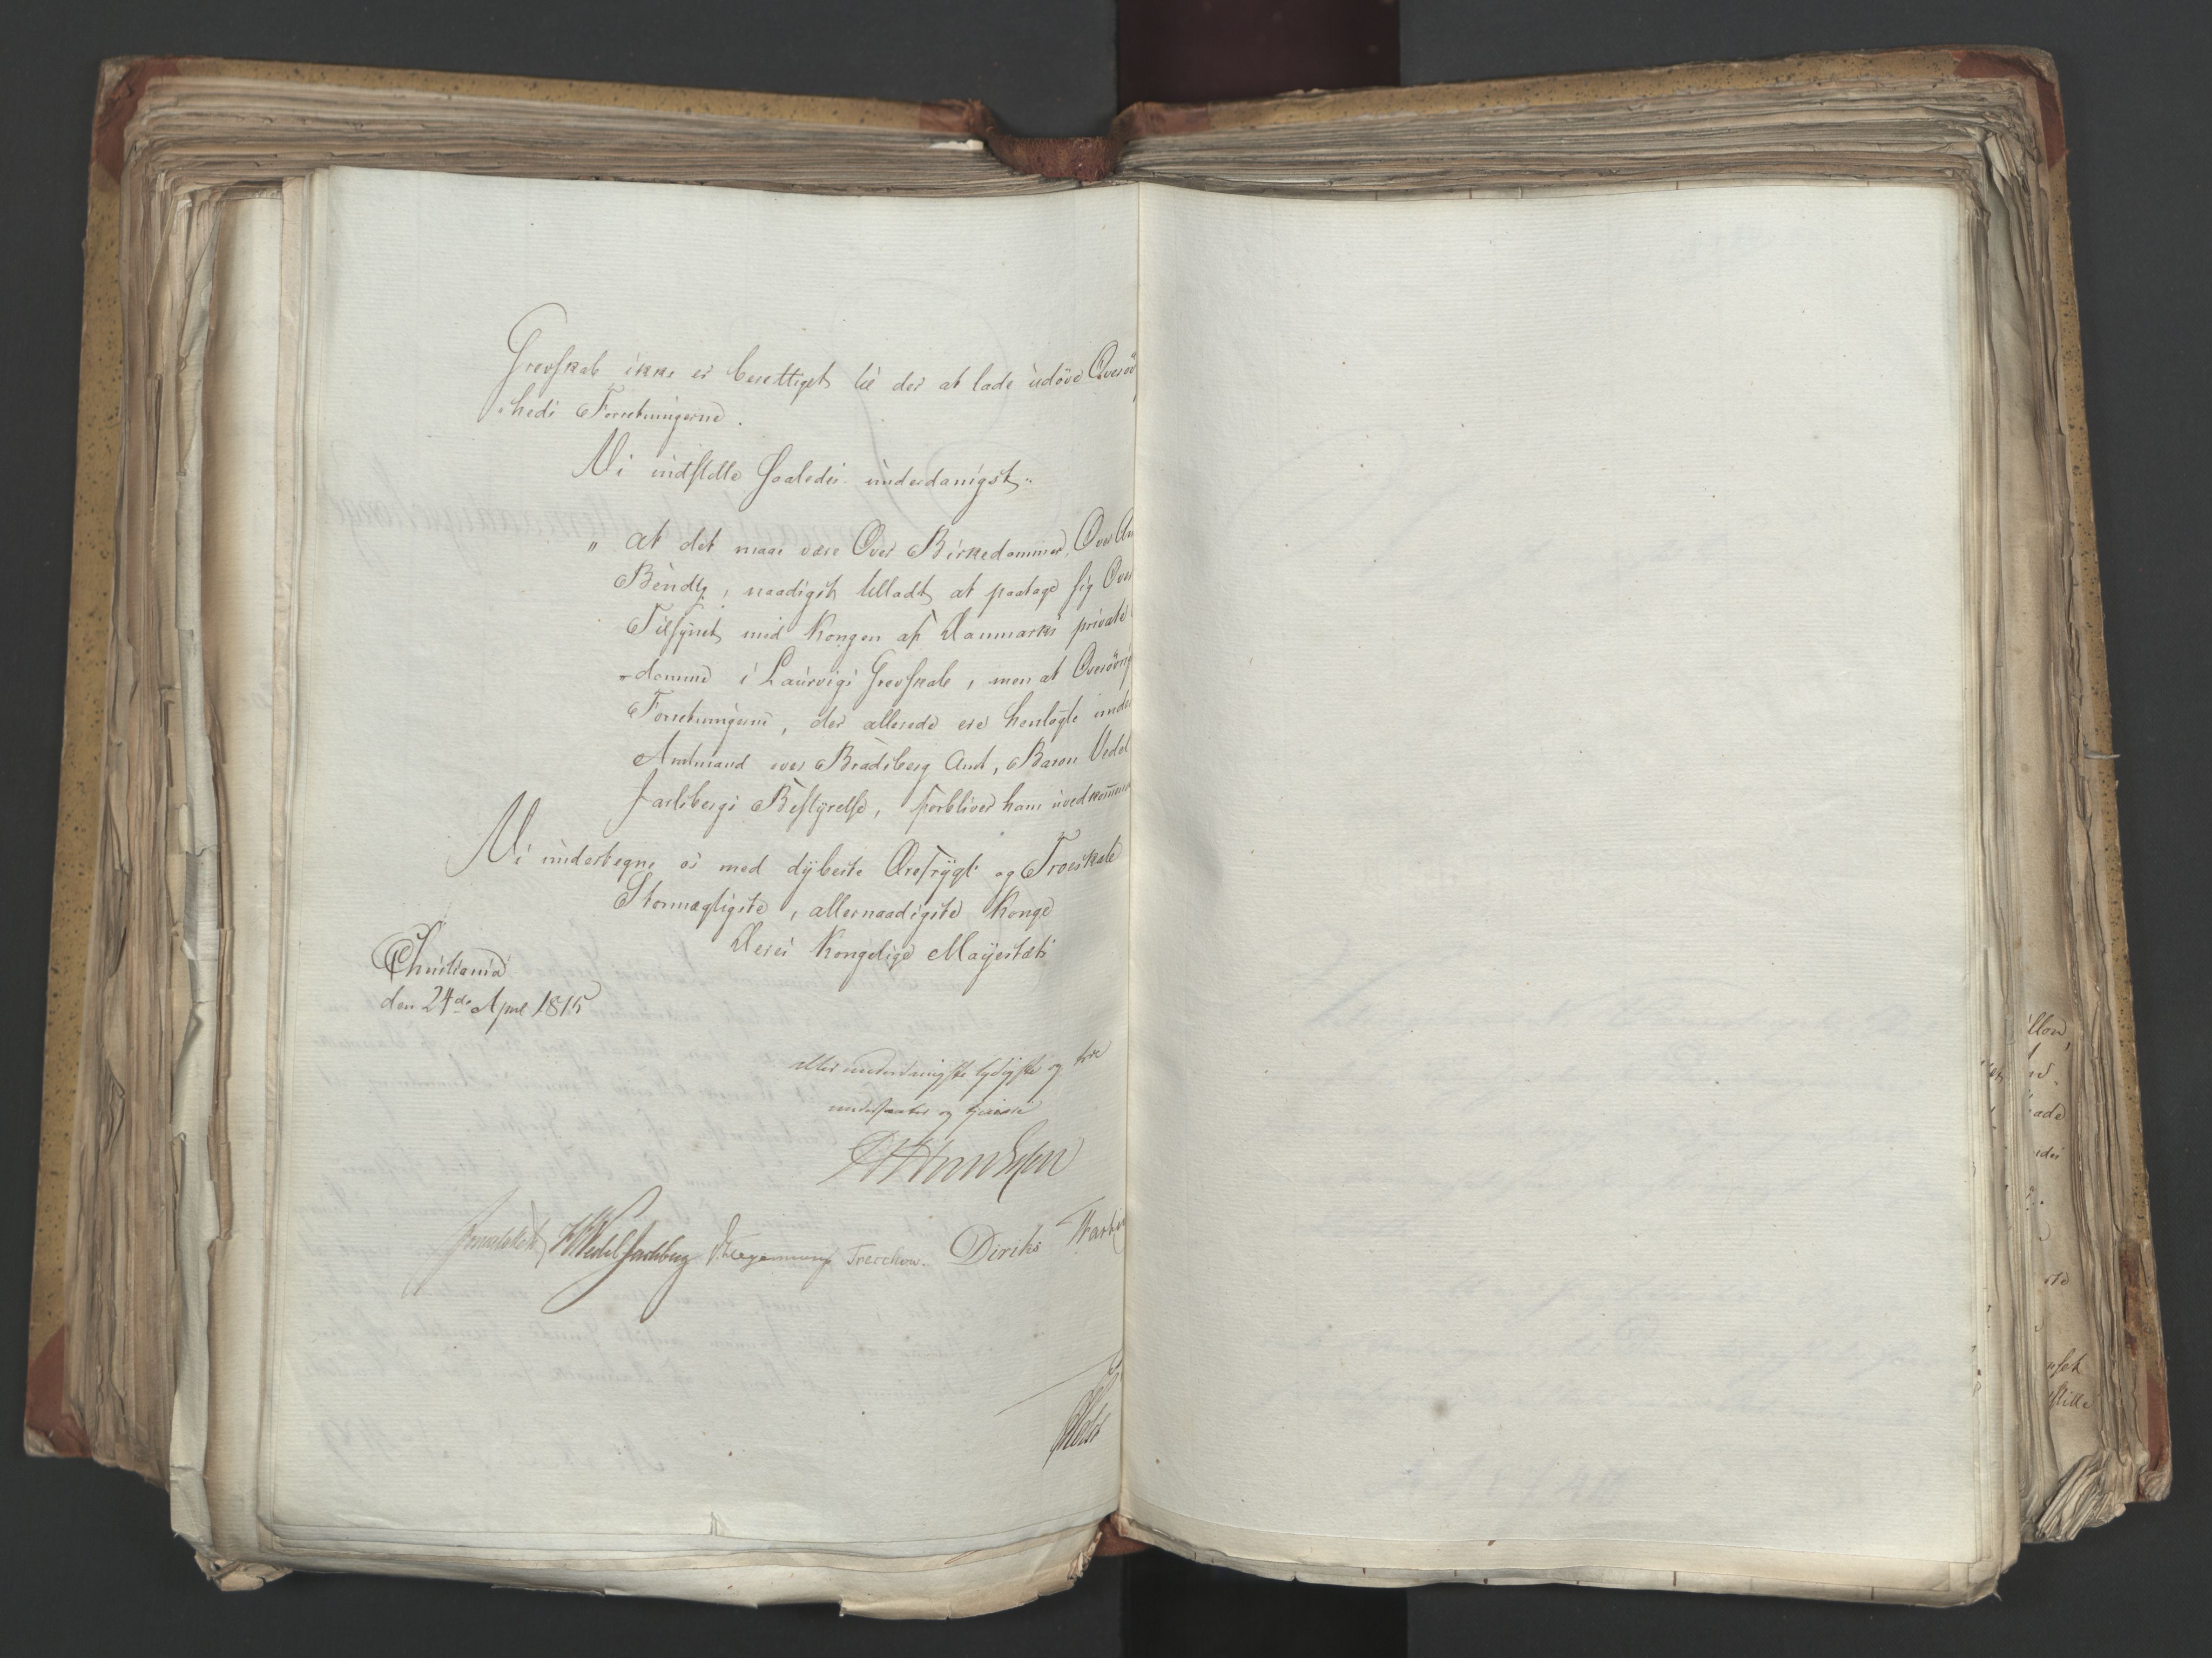 Grevskab ikke er berettiget til der at lade udöve Överöv
heds Forretningerne.
Vi indstille saaledes underdanigst:
" at det maae være Over Birkedommer, Over
Bendtz, naadigst tilladt at paatage sig Over
Tilsynet med Kongen af Danmarks private
-domme i Laurvigs Grevskab, men at Överövrig
Forretningerne, der allerede ere henlagte under
Amtmand over Bradsberg Amt, Baron Vedel
Jarlsbergs Bestyrelse, forbliver ham uvedkommen
Vi undertegne os med dybeste Ærefrygt og Troeskab
Stormægtigste, allernaadigste Konge
Deres Kongelige Mayestæts
Christiania
den 24de April 1815
allerunderdanigste lydigste og troe
undersaatter og tjenere
Sommerhielm HWedel Jarlsberg Hegermann Treschow. Diriks
Holst